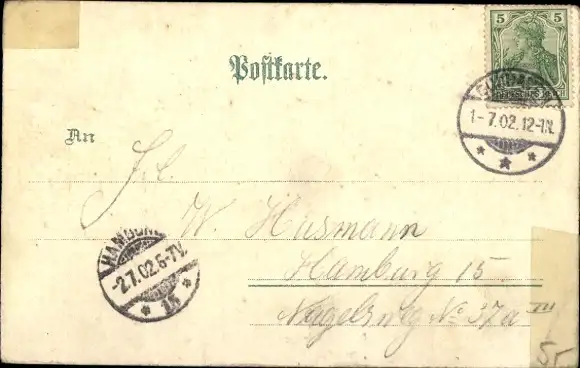 5 5
Postkarte.
1-7.02.12-1N.
An
Frl.
W. Husmann
HAMBURG
-2.7.02.6-7V.
* 15 *
Hamburg 15
Nagelsweg No 37a III
5,-